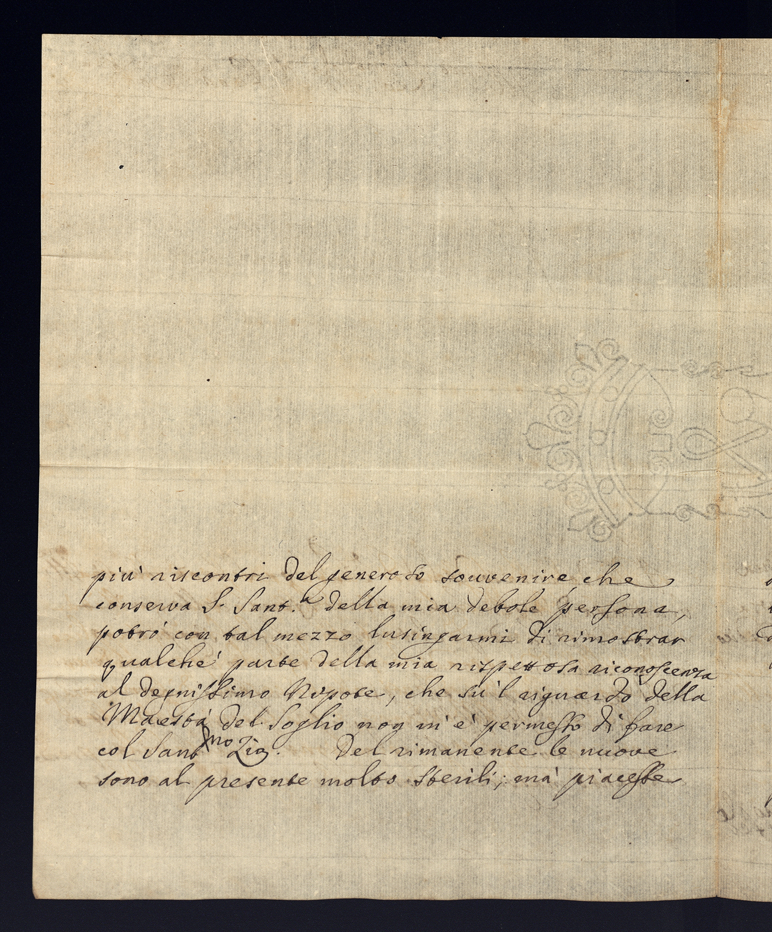 più riscontri del generoso souvenire, che
conserva S. Sant.ª della mia debole persona,
potrò con tal mezzo lusingarmi di rimostrar
qualche parte della mia rispettosa riconoscenza
al degnissimo Nipote, che sù'l riguardo della
Maestà del Soglio non m'è permesso di fare
col Sant.mo Zio. Del rimanente le nuove
sono al presente molto sterili; mà piacesse